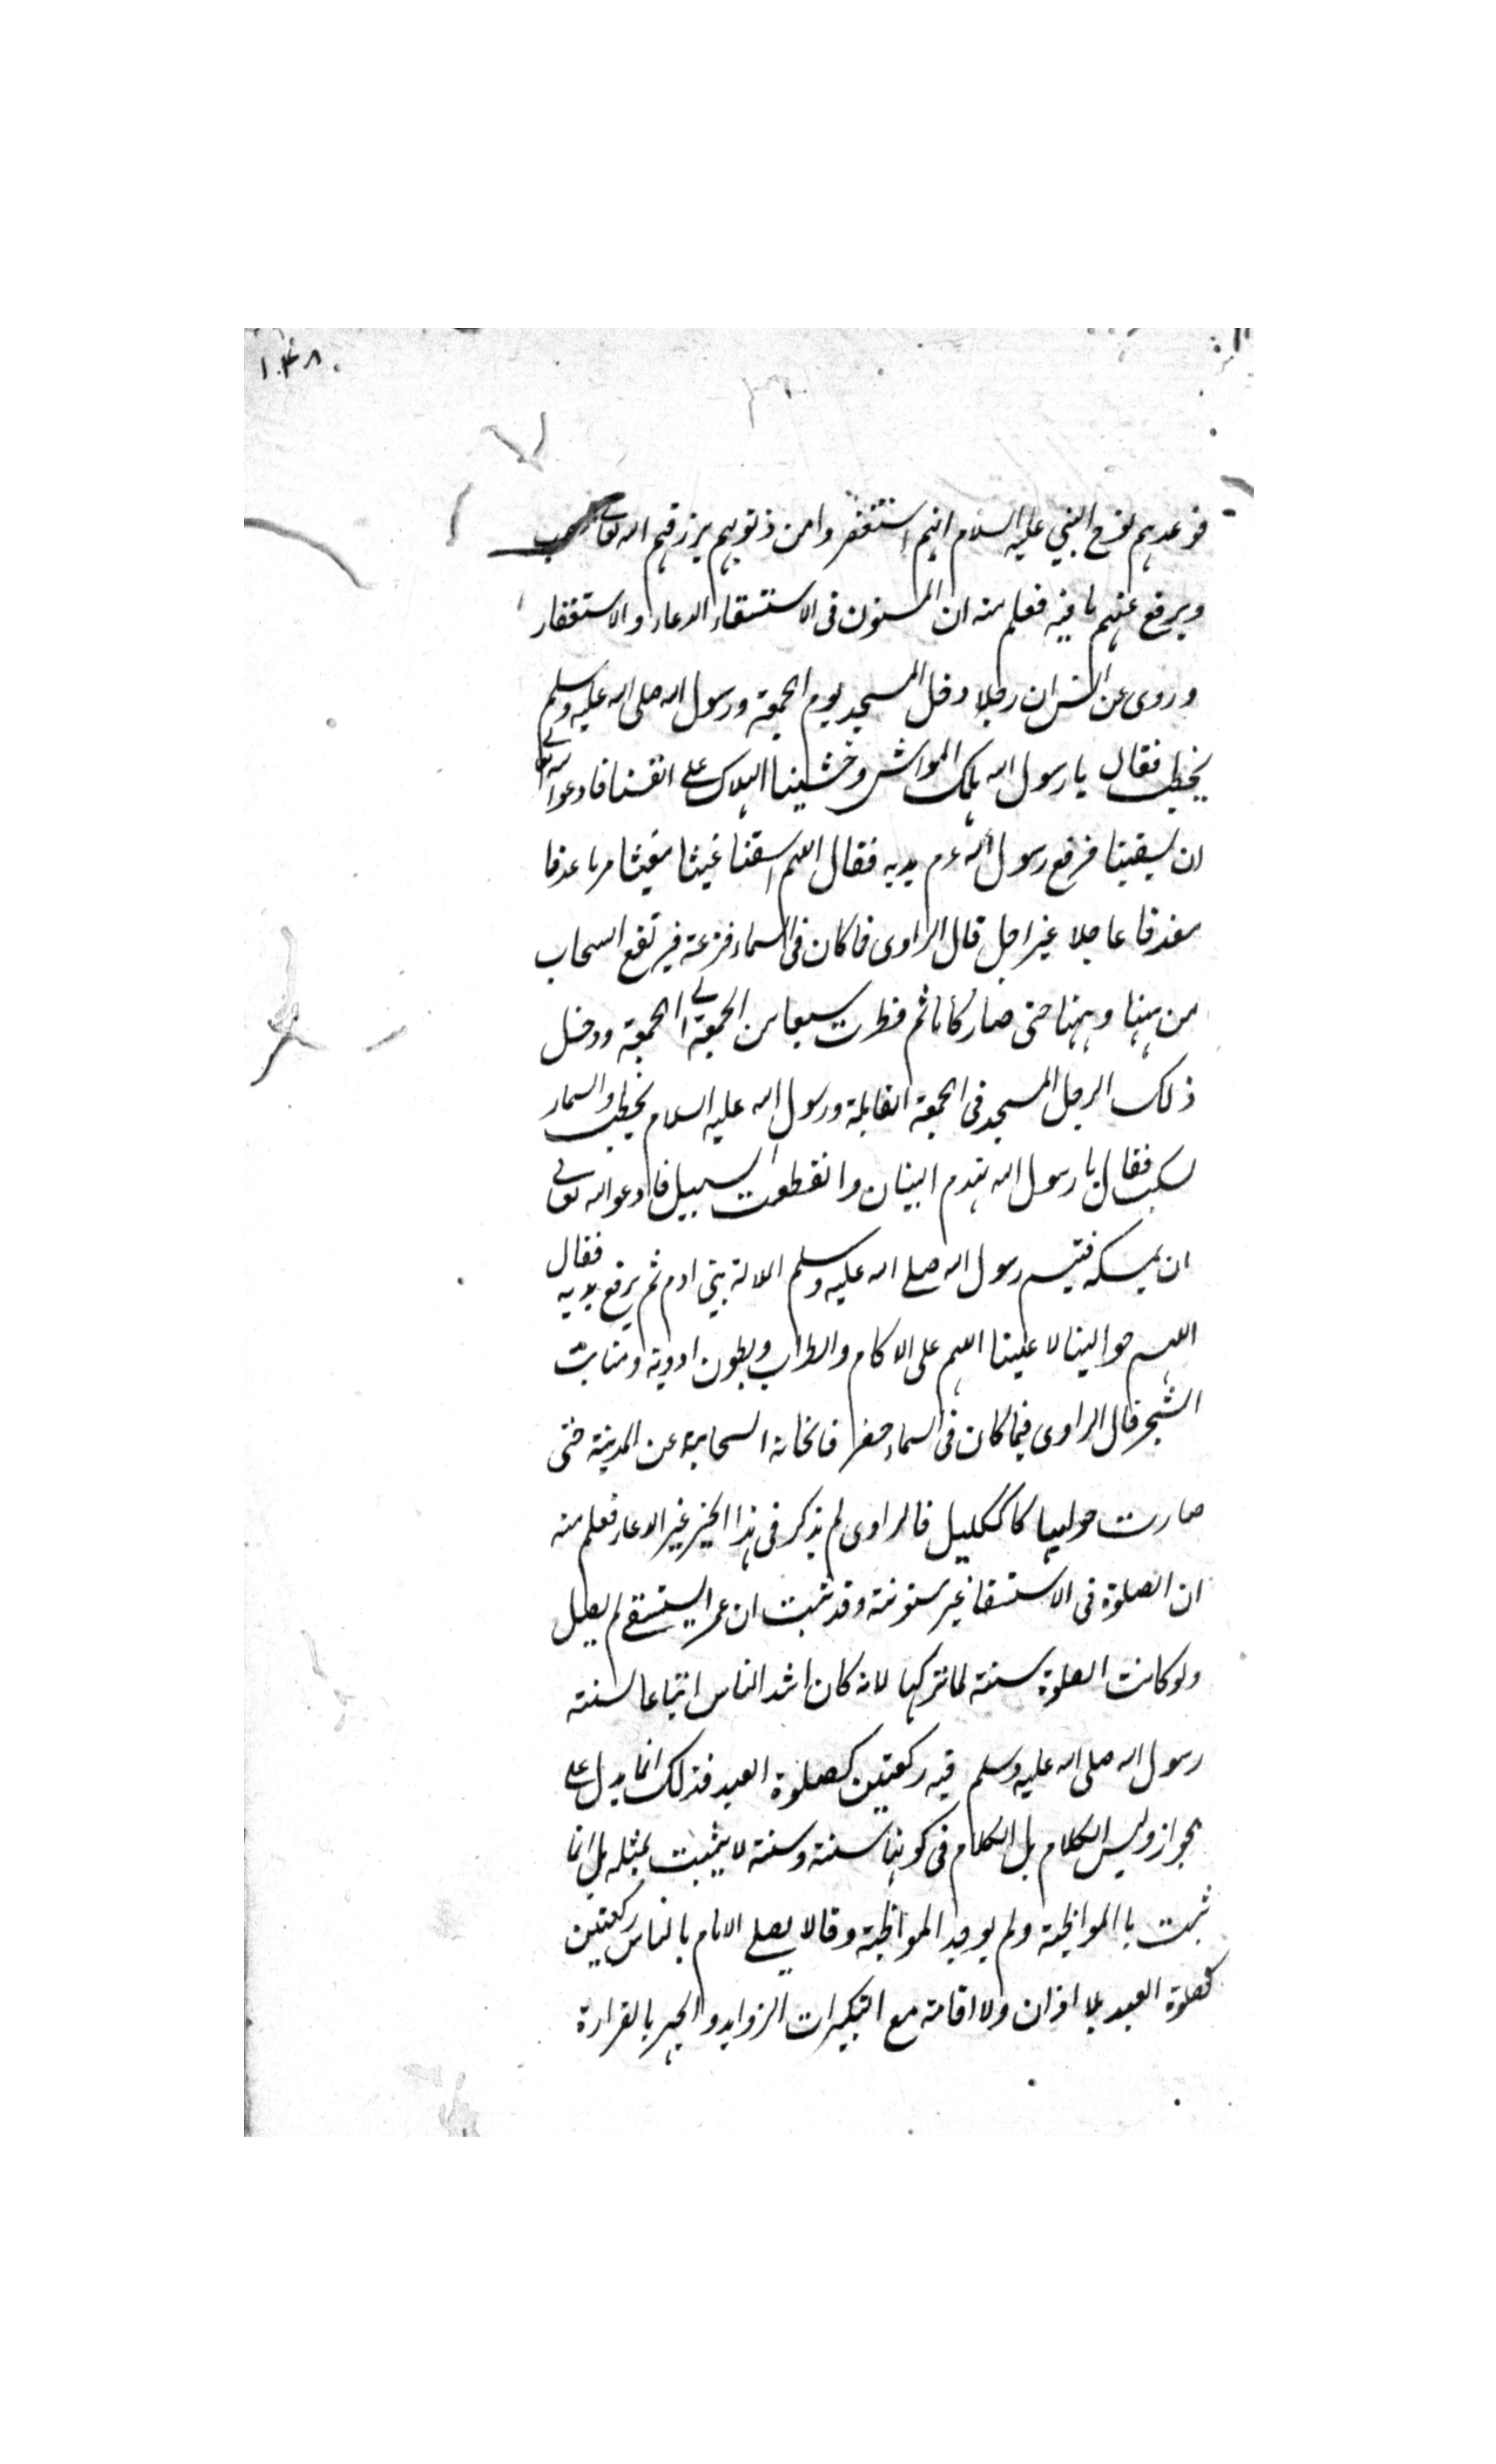 ١٠٤٨
فوعدهم نوح النبي عليه السلام انهم استغفروا من ذنوبهم يرزقهم الله تعالى
ويرفع عنهم ما فيه فعلم منه ان المسنون فى الاستسقاء الدعاء والاستغفار
وروى عن انس ان رجلا دخل المسجد يوم الجمعة ورسول الله صلى الله عليه وسلم
يخطب فقال يا رسول الله هلك المواشى وخشينا الهلاك على انفسنا فادعوا الله تعالى
ان يسقينا فرفع رسول الله عم يديه فقال اللهم اسقنا غيثا مغيثا مريا غدقا
مغدقا عاجلا غير اجل قال الراوى فما كان فى السماء قزعة فيرتفع السحاب
من ههنا وههنا حتى صار ركاما ثم مطرت سبعا من الجمعة الى الجمعة ودخل
ذلك الرجل المسجد فى الجمعة القابلة ورسول الله عليه السلام يخطب والسماء
يسكب فقال يا رسول الله تهدم البنيان وانقطعت السبيل فادعوا الله تعالى
ان يمسكه فتبسم رسول الله صلى الله عليه وسلم لملالة بنى ادم ثم يرفع يديه فقال
اللهم حوالينا لا علينا اللهم على الاكام والظراب وبطون اودية ومنابت
الشجر قال الراوى فيما كان فى السماء السحابة عن المدينة حتى
صارت حوليها كاككليل فالراوى لم يذكر فى هذا الخبر غير الدعاء فعلم منه
ان الصلوة فى الاستسقا غير مسنونة وقد ثبت ان عمر استسقى لم يصل
ولو كانت الصلوة سنة لما تركها لانه كان اشد الناس اتباعا لسنة
رسول الله صلى الله عليه وسلم فيه ركعتين كصلوة العيد فذلك انما يدل على
بجواز وليس الكلام بل الكلام فى كونها سنة وسنة لا يثبت بمثله بل انما
ثبت باالمواظبة ولم يوجد المواظبة وقالا يصلى الامام بالناس ركعتين
كصلوة العيد بلا اذان ولا اقامة مع التكبيرات الزوايد والجهر بالقراءة